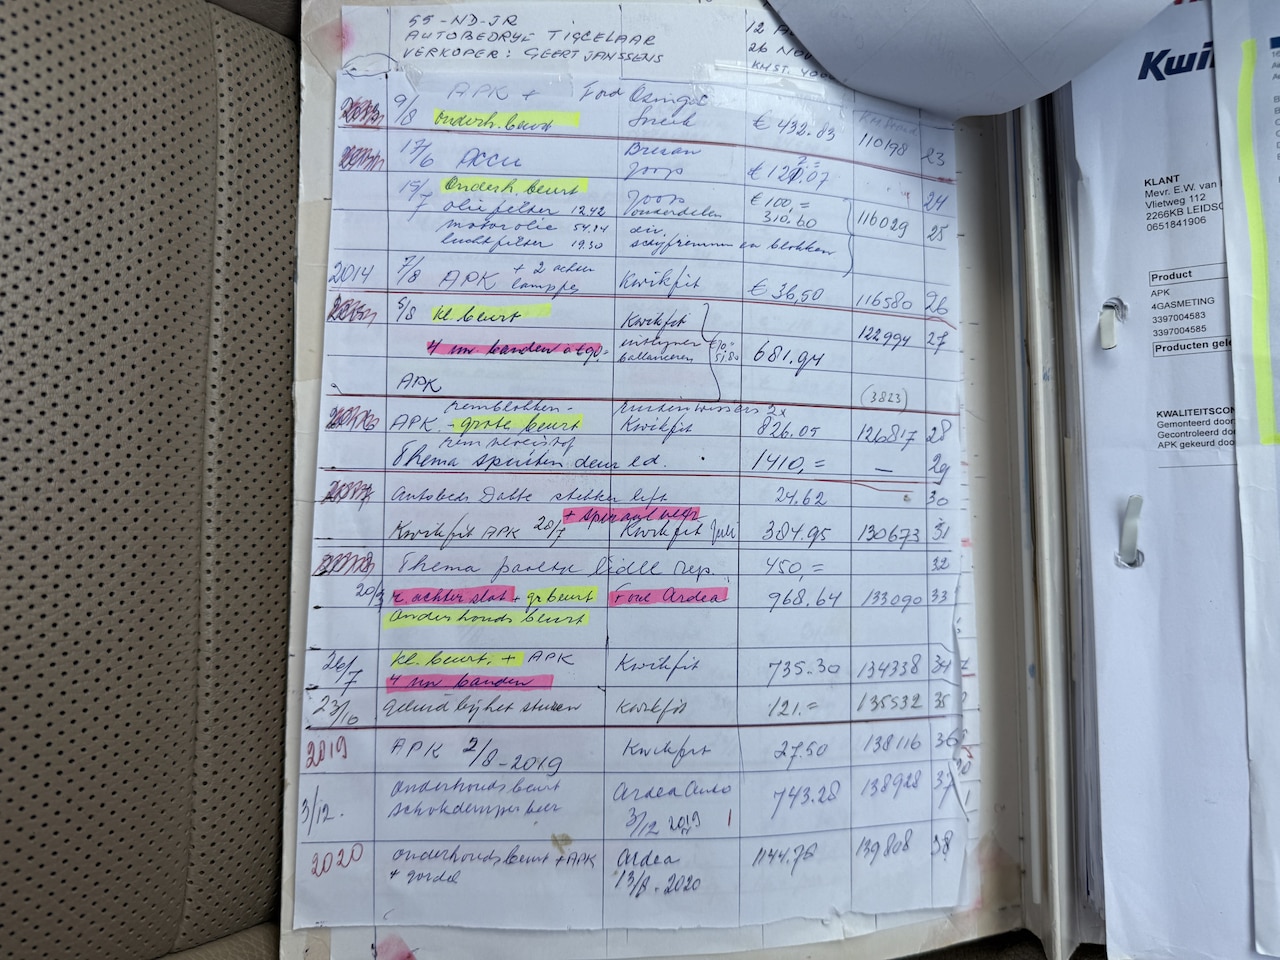 55-ND-JR
AUTOBEDRYF TIGGELAAR
VERKOPER: GEERT JANSSENS
12 A
26 NOV
KMST. 400
APK + Ford Osinga
9/8 onderh. beurt Sneek € 432.83 110198 23
17/6 Accu Brezan Joops € 121.07 24
15/7 Onderh. beurt Joops € 100,=
oliefilter 12.42 onderdelen 310.60 116029 25
motorolie 54.94 div.
luchtfilter 19.30 schyfremmen en blokken
2014 7/8 APK + 2 achter lampjes Kwikfit € 36,50 116580 26
5/8 kl. beurt Kwikfit 122994 27
4 nw. banden uitlijnen balanceren 681.94
APK (3823)
remblokken - ruitenwissers 2x
APK - grote beurt Kwikfit 826.05 126817 28
remvloeistof
Thema spuiten deur e.d. 1410,= — 29
Autobedr. stekker lift 24.62 30
+ spiraalveer
Kwikfit APK 20/7 Kwikfit Juli 384.95 130673 31
Thema paaltje rep. 450,= 32
20/3 r. achter slot + gr beurt Ford Ardea 968.64 133090 33
Onderhouds beurt
26/7 kl. beurt. + APK Kwikfit 735.30 134338 34
4 nw banden
23/10 geluid bij het sturen Kwikfit 121.= 135532 35
2019 APK 2/8-2019 Kwikfit 27.50 138116 36
3/12. onderhoudsbeurt Ardea Auto 743.28 138928 37
schokdemper veer 3/12 2019
2020 onderhoudsbeurt + APK Ardea 1144.76 139808 38
+ gordel 13/8-2020
Kwi
KLANT
Mevr. E.W. van
Vlietweg 112
2266KB LEIDSC
0651841906
Product
APK
4GASMETING
3397004583
3397004585
Producten gele
KWALITEITSCON
Gemonteerd door
Gecontroleerd door
APK gekeurd door